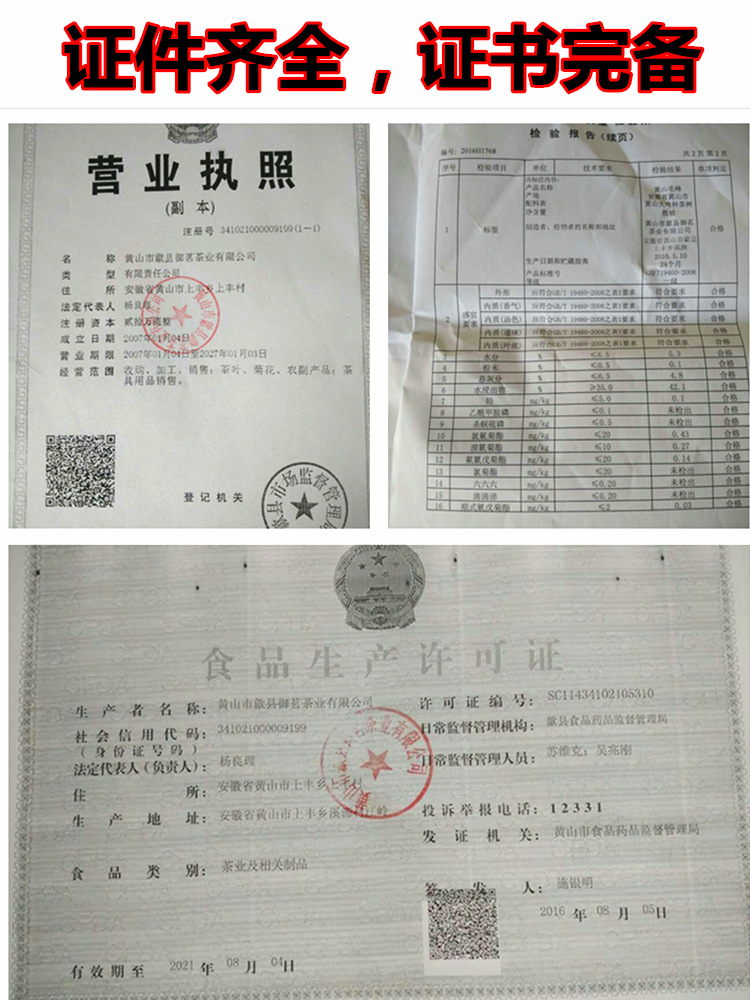 证件齐全，证书完备
营业执照
(副 本)
注册号 341021000009199(1-1)
名 称 黄山市歙县御茗茶业有限公司
类 型 有限责任公司
住 所 安徽省黄山市上丰乡上丰村
法定代表人 杨良理
注册资本 贰拾万圆整
成立日期 2007年01月04日
营业期限 2007年01月04日至2027年01月03日
经营范围 收购、加工、销售：茶叶、菊花、农副产品；茶
具用品销售。
登记机关
歙县市场监督管理局
检验报告(续页)
编号: 2016H1768 共 2 页 第 2 页
序号 检验项目 单位 技术要求 检验结果 单项判定
1 标签 应标注内容: 合格
产品名称 黄山毛峰
产地 安徽省黄山市
配料表 黄山大叶种茶树
净含量 散装
制造者、经销者的名称和地址 黄山市歙县御茗
茶业有限公司
安徽省黄山市上
丰乡溪源
生产日期和贮藏指南 2016.5.10
24个月
产品标准号 GB/T19460-2008
等级 一级
2 感官要求
外形 应符合GB/T 19460-2008之表1要求 符合要求 合格
内质(香气) 应符合GB/T 19460-2008之表1要求 符合要求 合格
内质(汤色) 应符合GB/T 19460-2008之表1要求 符合要求 合格
内质(滋味) 应符合GB/T 19460-2008之表1要求 符合要求 合格
内质(叶底) 应符合GB/T 19460-2008之表1要求 符合要求 合格
3 水分 % ≤6.5 5.3 合格
4 粉末 % ≤0.5 0.1 合格
5 总灰分 % ≤6.5 4.8 合格
6 水浸出物 % ≥35.0 42.1 合格
7 铅 mg/kg ≤5.0 0.1 合格
8 乙酰甲胺磷 mg/kg ≤0.1 未检出 合格
9 杀螟硫磷 mg/kg ≤0.5 未检出 合格
10 氯氰菊酯 mg/kg ≤20 0.43 合格
11 溴氰菊酯 mg/kg ≤10 0.27 合格
12 氟氰戊菊酯 mg/kg ≤20 0.14 合格
13 氯菊酯 mg/kg ≤20 未检出 合格
14 六六六 mg/kg ≤0.20 未检出 合格
15 滴滴涕 mg/kg ≤0.20 未检出 合格
16 顺式氰戊菊酯 mg/kg ≤2 0.03 合格
食品生产许可证
生产者名称: 黄山市歙县御茗茶业有限公司
社会信用代码: 341021000009199
(身份证号码)
法定代表人(负责人): 杨良理
住 所: 安徽省黄山市上丰乡上丰村
生产地址: 安徽省黄山市上丰乡溪源
食品类别: 茶叶及相关制品
有效期至 2021 年 08 月 04 日
许可证编号: SC11434102105310
日常监督管理机构: 歙县食品药品监督管理局
日常监督管理人员: 苏维克; 吴兆刚
投诉举报电话: 12331
发证机关: 黄山市食品药品监督管理局
签发人: 施银明
2016 年 08 月 05 日